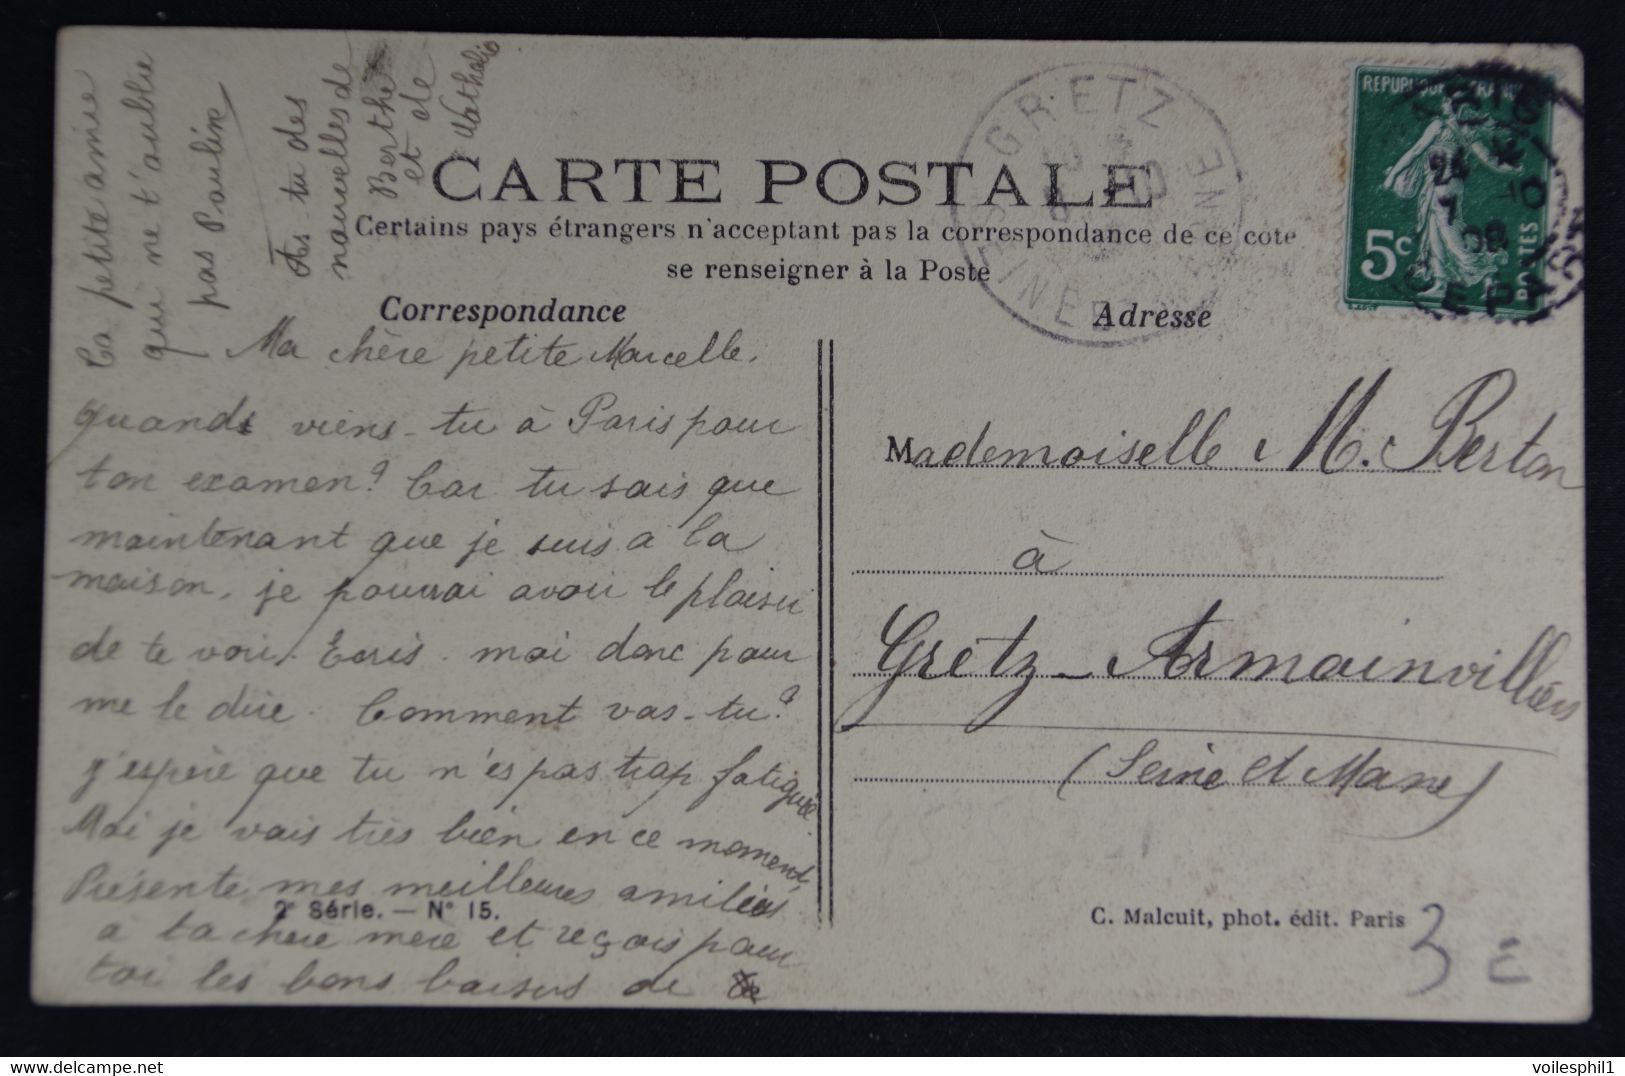 CARTE POSTALE
Certains pays étrangers n'acceptant pas la correspondance de ce coté
se renseigner à la Poste
Correspondance
Adresse
REPUBLIQUE FRANÇAISE
5c
POSTES
GRETZ
SEINE
Ma chère petite Marcelle.
Quand viens-tu à Paris pour
ton examen? Car tu sais que
maintenant que je suis a la
maison, je pourrai avoir le plaisir
de te voir. Ecris-moi donc pour
me le dire. Comment vas-tu?
J'espère que tu n'es pas trop fatiguée
Moi je vais très bien en ce moment,
Présente mes meilleures amitiées
a ta chère mère et reçois pour
toi les bons baisers de
Ta petite amie
qui ne t'oublie
pas Pauline
As-tu des
nouvelles de
Berthe
et de
Nathalie
Mademoiselle M. Berton
à
Gretz-Armainvilliers
(Seine et Marne)
2e Série. — N° 15.
C. Malcuit, phot. édit. Paris
3 €
delcampe.net
voilesphil1